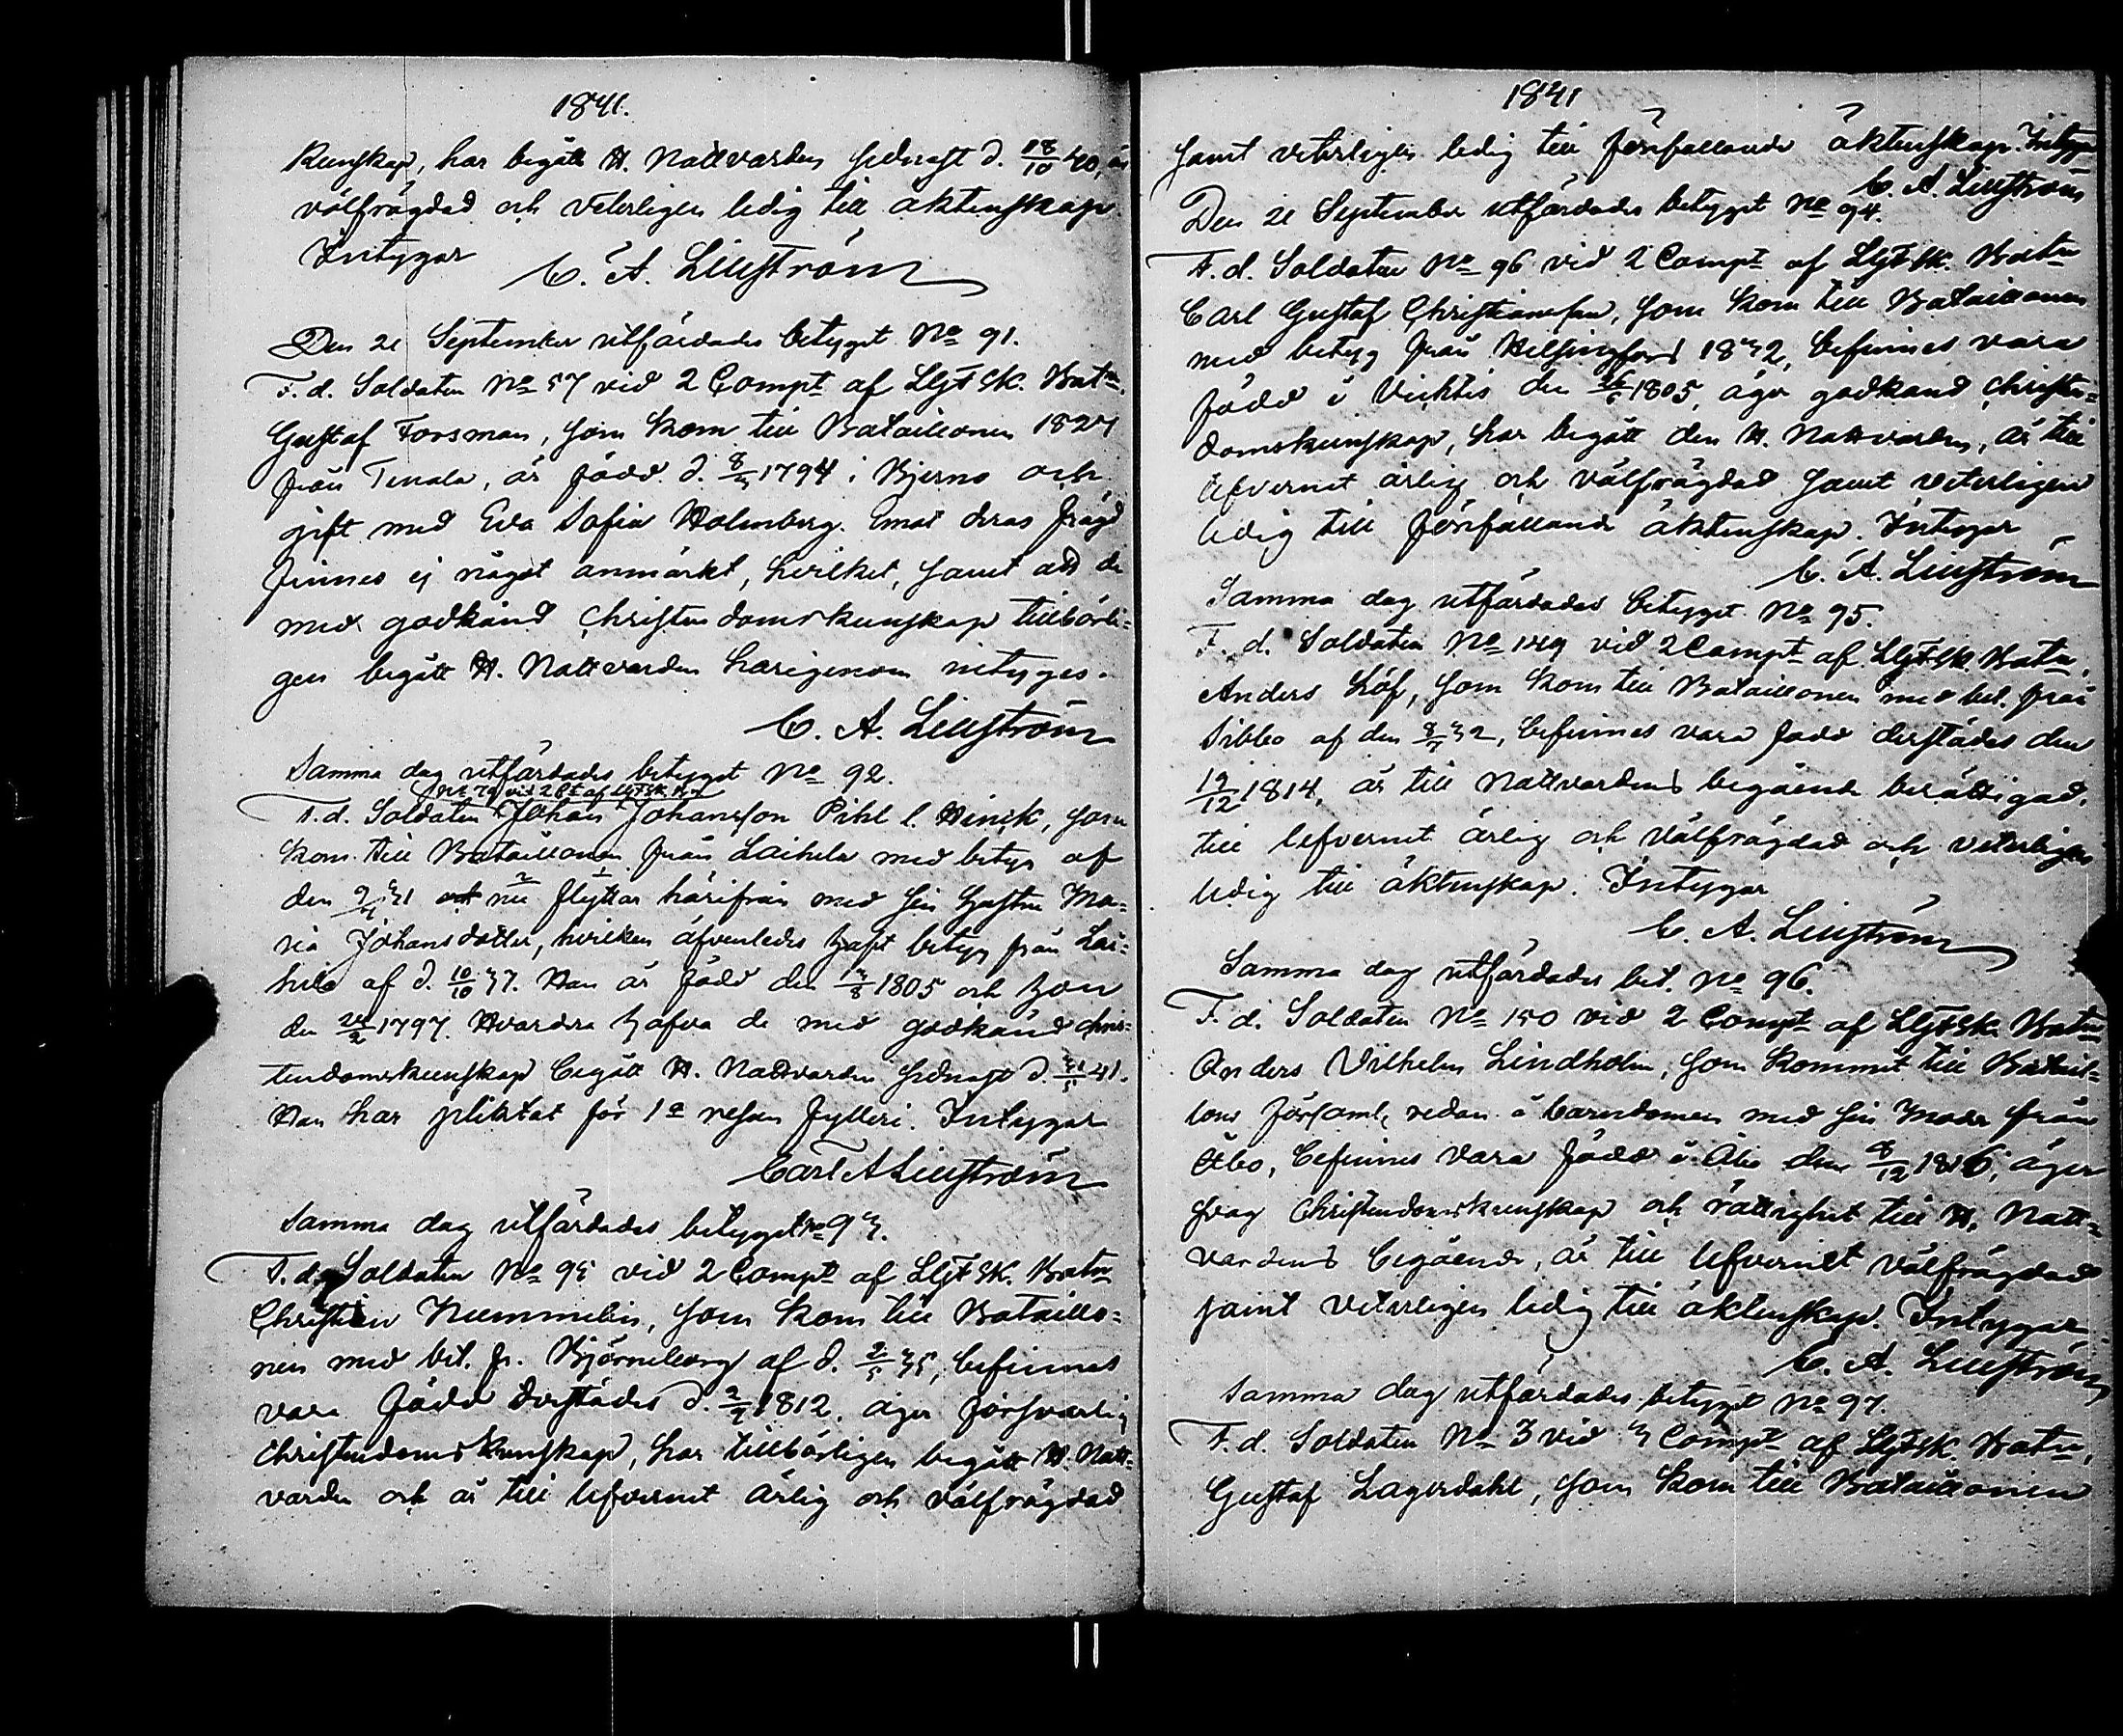 1841.
Kunskap, har begått H. Nattvarden sednast d. 18/10 40, är
välfrägdad och veterligen ledig till äktenskap
Intygar
C. A. Liljström
Den 21 September utfärdades betyget No 91.
F. d. Soldaten No 57 vid 2 Compt af Llft Sk. Batn.
Gustaf Forsman, som kom till Bataillonen 1827
från Tenala, är född d. 8/3 1794 i Bjerno och
gift med Eva Sofia Holmberg. Emot deras frägd
finnes ej något anmärkt, hvilket, samt att de
med godkänd Christendomskunskap tillbörli-
gen begått H. Nattvarden härigenom intyges.
C. A. Liljström
Samma dag utfärdades betyget No 92.
No 79 vid 2 Ct af Llft Sk. Bn
F. d. Soldaten Johan Johansson Pihl l. Hinck, som
kom till Bataillonen från Laihela med betyg af
den 9/4 31 och nu flyttar härifrån med sin hustru Ma-
ria Johansdotter, hvilken äfvenledes haft betyg från Lai-
hela af d. 10/10 37. Han är född den 3/8 1805 och hon
den 24/2 1797. Hvardera hafva de med godkänd chris-
tendomskunskap begått H. Nattvarden sednast d. 31/5 41.
Han har pliktat för 1a resan fylleri. Intygar
Carl A Liljström
Samma dag utfärdades betyget No 93.
F. d. Soldaten No 95 vid 2 Compt af Llft Sk. Batn
Christian Nummelin, som kom till Bataillo-
nen med bet. fr. Björneborg af d. 2/5 35, befinnes
vara född derstädes d. 2/7 1812, äger försvarlig
Christendomskunskap, har tillbörligen begått H. Natt-
varden och är till lefvernet ärlig och välfrägdad
1841
samt veterligen ledig till förefallande äktenskap. Intygar
C. A. Liljström
Den 21 September utfärdades betyget No 94.
F. d. Soldaten No 96 vid 2 Compt af Llft Sk. Batn
Carl Gustaf Christiansson, som kom till Bataillonen
med betyg från Helsingfors 1832, befinnes vara
född i Vichtis den 26/5 1805, äger godkänd christen-
domskunskap, har begått den H. Nattvarden, är till
lefvernet ärlig och välfrägdad samt veterligen
ledig till förefallande äktenskap. Intygar
C. A. Liljström
Samma dag utfärdades betyget No 95.
F. d. Soldaten No 149 vid 2 Compt af Llft Sk. Batn,
Anders Löf, som kom till Bataillonen med bet. från
Sibbo af den 8/7 32, befinnes vara född derstädes den
19/12 1814, är till Nattvardens begående berättigad,
till lefvernet ärlig och välfrägdad och veterligen
ledig till äktenskap. Intygar
C. A. Liljström
Samma dag utfärdades bet. No 96.
F. d. Soldaten No 150 vid 2 Compt af Llft Sk. Batn
Anders Vilhelm Lindholm, som kommit till Batail-
lons församl, redan i barndomen med sin Moder från
Åbo, befinnes vara född i Åbo den 8/12 1816, äger
svag Christendomskunskap och rättighet till H. Natt-
vardens begående, är till lefvernet välfrägdad
samt veterligen ledig till äktenskap. Intygar
C. A. Liljström
Samma dag utfärdades betyget No 97.
F. d. Soldaten No 3 vid 3 Compt af Llft Sk. Batn,
Gustaf Lagerdahl, som kom till Bataillonen